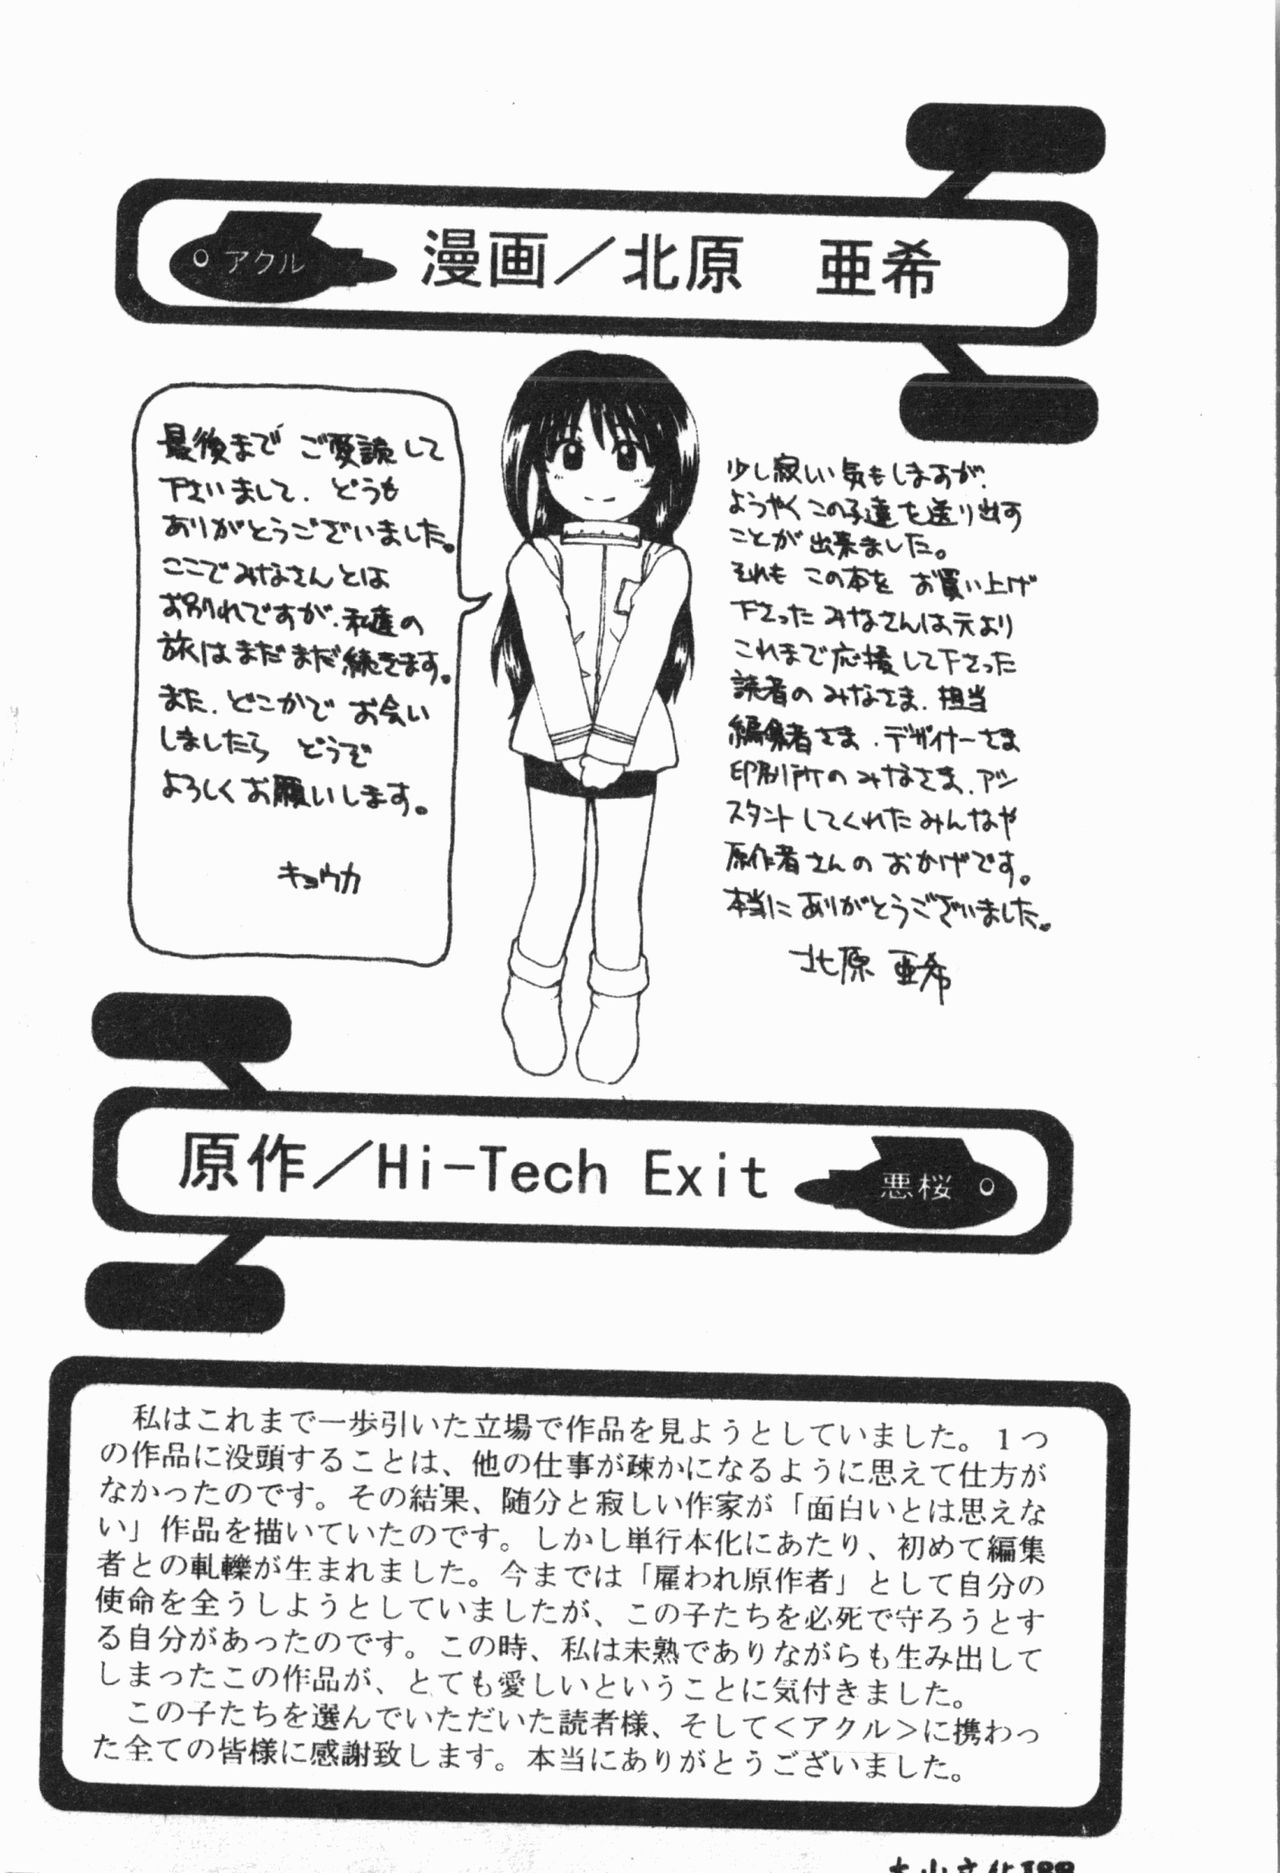 アクル
漫画／北原　亜希
最後まで ご愛読して
下さいまして、どうも
ありがとうございました。
ここでみなさんとは
お別れですが、私達の
旅はまだまだ続きます。
また、どこかで お会い
しましたら どうぞ
よろしくお願いします。
キョウカ
少し寂しい気もしますが、
ようやくこの子達を送り出す
ことが出来ました。
それも この本を お買い上げ
下さったみなさんは元より
これまで応援して下さった
読者のみなさま、担当
編集者さま、デザイナーさま
印刷所のみなさま、アシ
スタントしてくれたみんなや
原作者さんのおかげです。
本当にありがとうございました。
北原 亜希
原作／Hi-Tech Exit
悪桜
　私はこれまで一歩引いた立場で作品を見ようとしていました。１つ
の作品に没頭することは、他の仕事が疎かになるように思えて仕方が
なかったのです。その結果、随分と寂しい作家が「面白いとは思えな
い」作品を描いていたのです。しかし単行本化にあたり、初めて編集
者との軋轢が生まれました。今までは「雇われ原作者」として自分の
使命を全うしようとしていましたが、この子たちを必死で守ろうとす
る自分があったのです。この時、私は未熟でありながらも生み出して
しまったこの作品が、とても愛しいということに気付きました。
　この子たちを選んでいただいた読者様、そして＜アクル＞に携わっ
た全ての皆様に感謝致します。本当にありがとうございました。